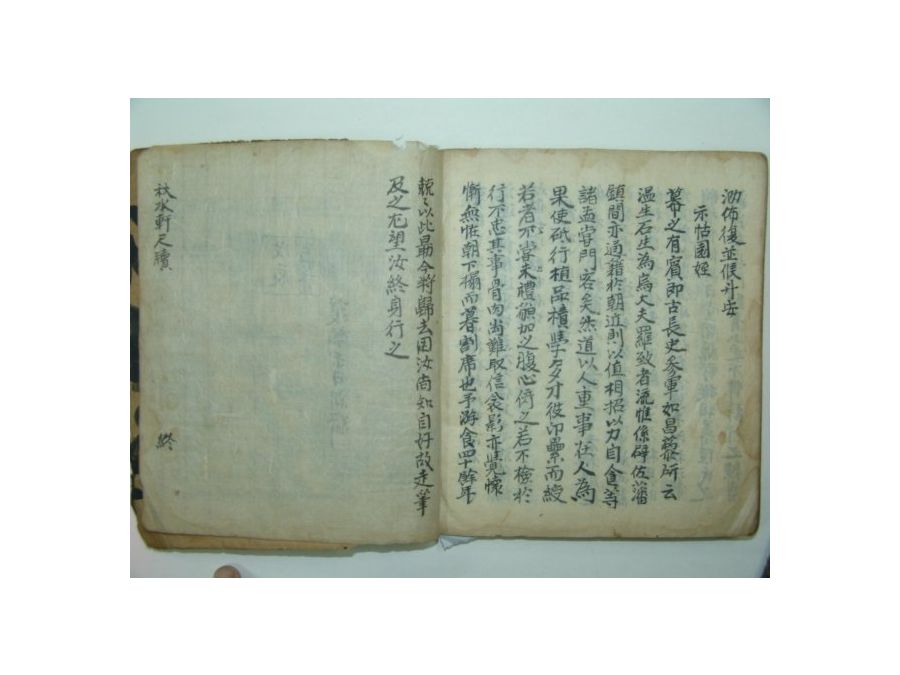 泐佈復並候升安
示怙園姪
幕之有賓即古長史參軍如昌藜所云
溫生石生為烏大夫羅致者流惟係辟佐藩
鎮間亦通籍於朝近則以值相招以力自食等
諸孟嘗門客矣然道以人重事在人為
果使砥行植品積學多才役印纍而綬
若者不嘗未禮貌加之腹心倚之若不檢於
行不忠其事骨肉尚難取信衾影亦覺懷
慚無恠朝下榻而暮割席也予游食四十餘年
兢以此最今將歸去因汝尚知自好故走筆
及之尤望汝終身行之
秋水軒尺牘
終